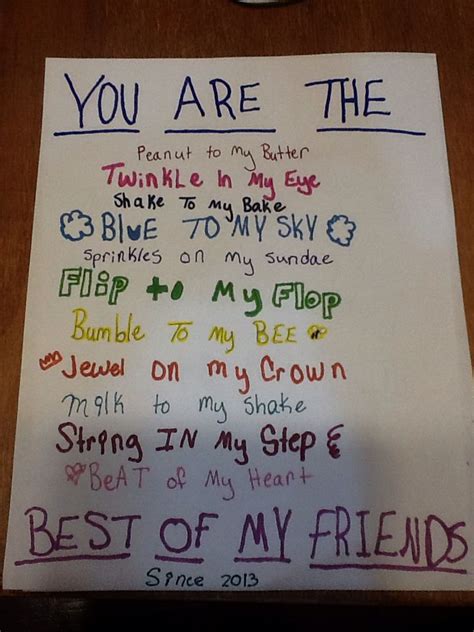 YOU ARE THE
Peanut to My Butter
Twinkle In My Eye
Shake To My Bake
BluE TO MY SKY
Sprinkles on my sundae
Flip to My Flop
Bumble To My BEE
Jewel on my Crown
Milk to my Shake
String IN My Step
BeAT of My Heart
BEST OF MY FRIENDS
Since 2013